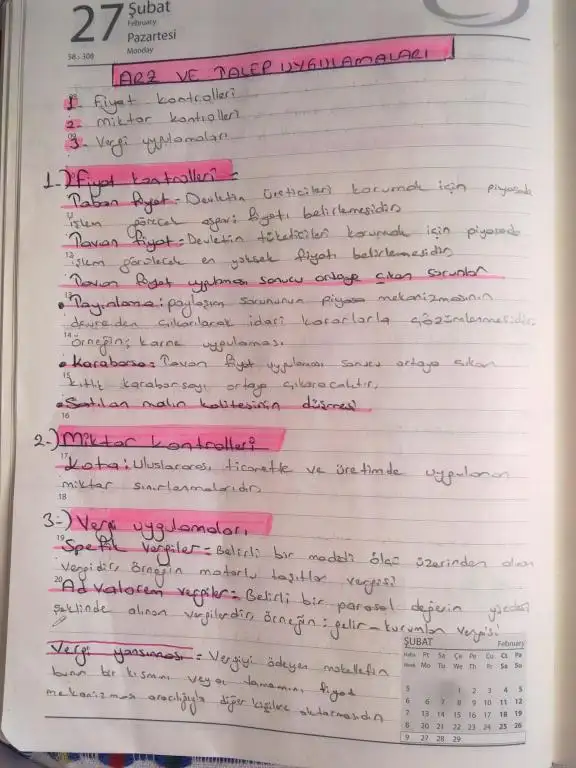 27 Şubat
February
Pazartesi
Monday
58 - 308
ARZ VE TALEP UYGULAMALARI
1- Fiyat kontrolleri
2- Miktar kontrolleri
3- Vergi uygulamaları
1-) Fiyat kontrolleri =
Taban fiyat = Devletin üreticileri korumak için piyasada
işlem görecek asgari fiyatı belirlemesidir
Tavan fiyat = Devletin tüketicileri korumak için piyasada
12 işlem görülecek en yüksek fiyatı belirlemesidir
Tavan fiyat uygulması sonucu ortaya çıkan sorunlar
13
• Tayınlama: paylaşım sorununun piyasa mekanizmasının
devreden çıkarılarak idari kararlarla çözümlenmesidir.
14 örneğin; karne uygulaması
• Karaborsa: Tavan fiyat uygulaması sonucu ortaya çıkan
15 kıtlık karaborsayı ortaya çıkaracaktır.
• Satılan malın kalitesinin düşmesi
16
2-) Miktar kontrolleri
17 Kota: Uluslararası ticarette ve üretimde uygulanan
miktar sınırlanmalarıdır
18
3-) Vergi uygulamaları
19 Spefik vergiler = Belirli bir maddi ölçü üzerinden alınan
vergidir örneğin motorlu taşıtlar vergisi
20 Ad valorem vergiler = Belirli bir parasal değerin yüzdesi
şeklinde alınan vergilerdir, örneğin: gelir - kurumlar vergisi
Vergi yansıması = Vergiyi ödeyen mükellefin
bunun bir kısmını veya tamamını fiyat
mekanizması aracılığıyla diğer kişilere aktarmasıdır
ŞUBAT February
Hafta Pt Sa Ça Pe Cu Ct Pa
Week Mo Tu We Th Fr Sa Su
5 1 2 3 4 5
6 6 7 8 9 10 11 12
7 13 14 15 16 17 18 19
8 20 21 22 23 24 25 26
9 27 28 29